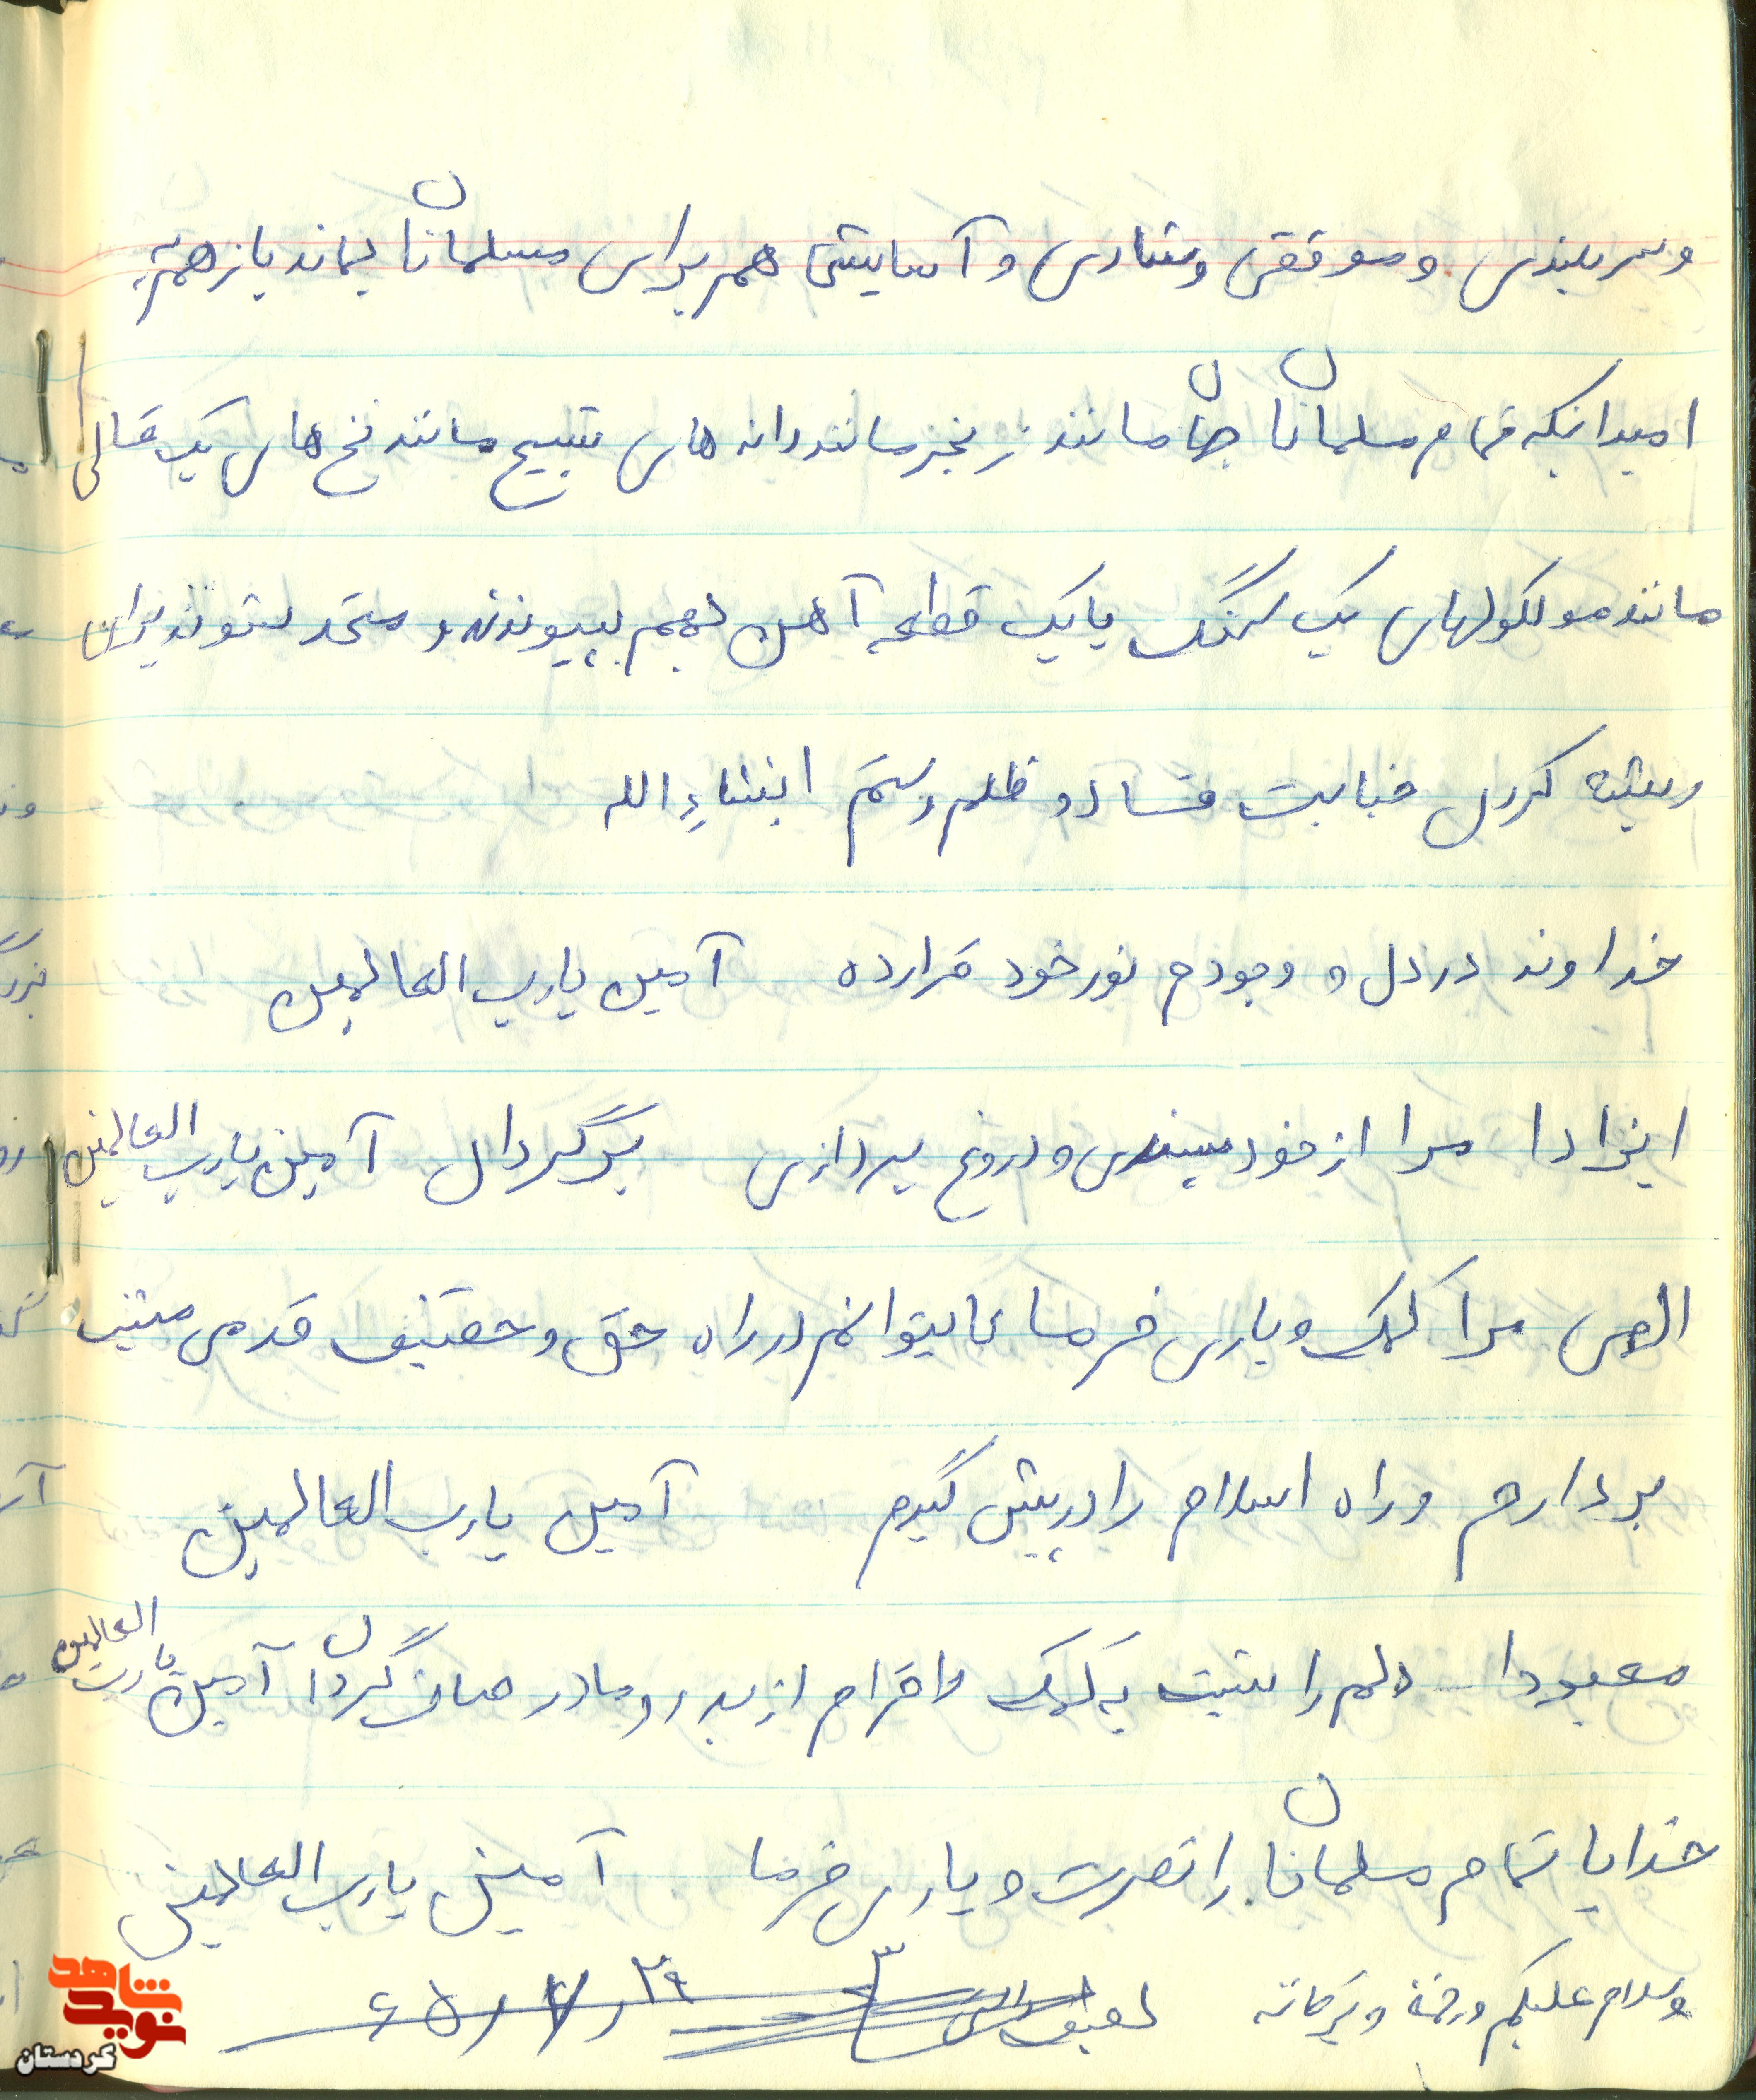 و سربلندی و موفقی و شادی و آسایشی هم برای مسلمانان بماند باز هم به
امید اینکه تمام مسلمانان جهان مانند زنجیر مانند دانه های تسبیح مانند نخ های یک قالی
مانند مولکولهای یک سنگ یا یک قطعه آهن بهم بپیوندند و متحد شوند برای
ریشه کردن جنایت فساد و ظلم و ستم انشاءالله
خداوند در دل و وجودم نور خود قرار ده آمین یا رب العالمین
ایزدا مرا از خودپسندی و دروغ پردازی برگردان آمین یا رب العالمین
الهی مرا کمک و یاری فرما تا بتوانم در راه حق و حقیقت قدمی مثبت
بردارم و راه اسلام را در پیش گیرم آمین یا رب العالمین
معبودا دلم را نسبت به کمک و احترام از پدر و مادر صاف گردان آمین یا رب العالمین
خدایا تمام مسلمانان را نصرت و یاری فرما آمین یا رب العالمین
وسلام علیکم و رحمة و برکاته ۲۹ / ۶۵
شاهد
نوید
کردستان